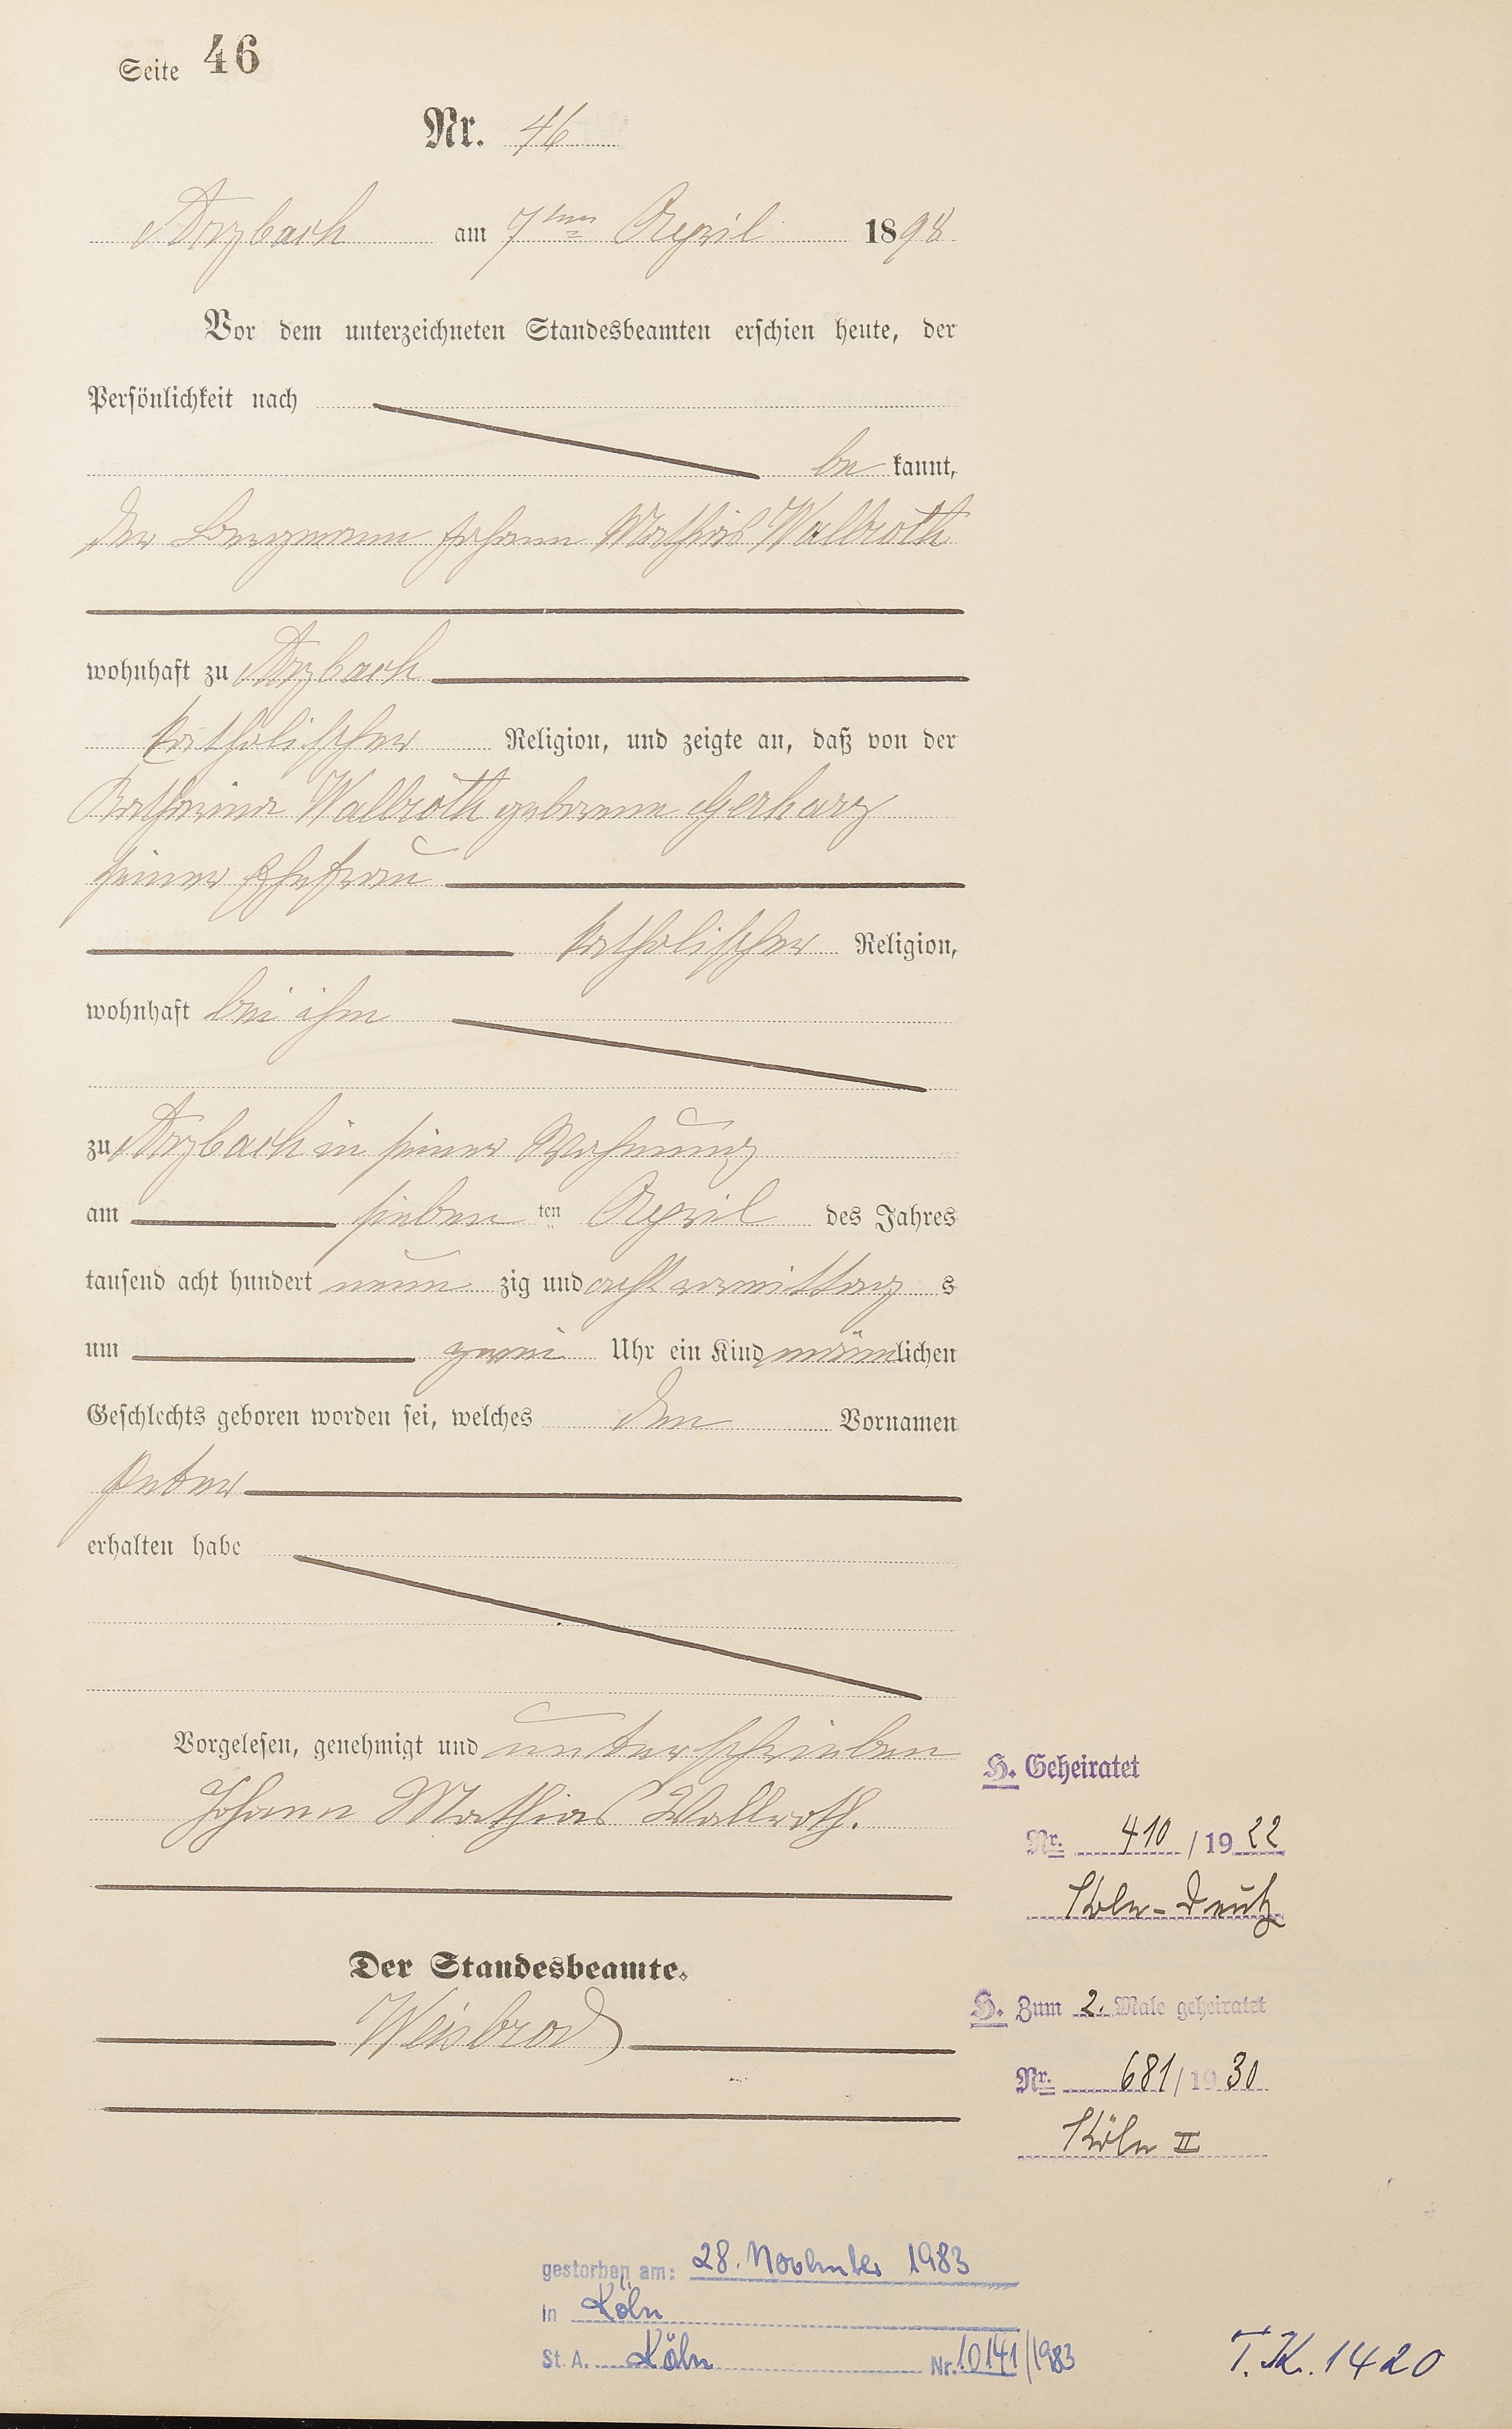 Seite 46
Nr. 46
Arzbach am 7ten April 1898
Vor dem unterzeichneten Standesbeamten erschien heute, der
Persönlichkeit nach
be kannt,
der Bergmann Johann Mathias Wallroth
wohnhaft zu Arzbach
katholischer Religion, und zeigte an, daß von der
Katharina Wallroth geborene Gerharz
seiner Ehefrau
katholischer Religion,
wohnhaft bei ihm
zu Arzbach in seiner Wohnung
am sieben ten April des Jahres
tausend acht hundert neun zig und acht vormittag s
um zwei Uhr ein Kind männlichen
Geschlechts geboren worden sei, welches den Vornamen
Peter
erhalten habe
Vorgelesen, genehmigt und unterschrieben
Johann Mathias Wallroth.
Der Standesbeamte.
Weisbrod
H. Geheiratet
Nr. 410 / 1922
Köln-Deutz
H. Zum 2. Male geheiratet
Nr. 681 / 1930
Köln II
gestorben am: 28. November 1983
in Köln
St. A. Köln Nr. 10141/1983
T.K. 1420